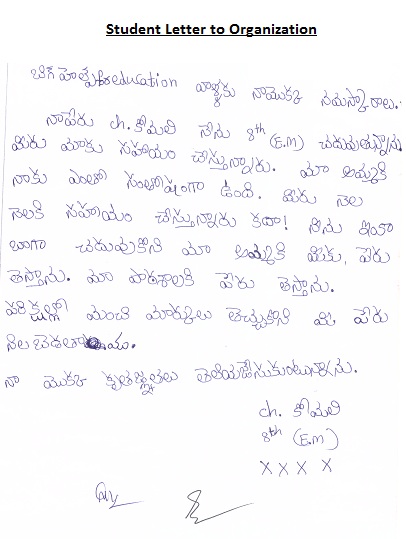 Student Letter to Organization
బిగ్ హెల్ప్ foreducation వాళ్ళకు నాయొక్క నమస్కారాలు.
నాపేరు ch. కోమలి నేను 8th (E.M) చదువుతున్నాను
మీరు మాకు సహాయం చేస్తున్నారు. మా అమ్మకి
నాకు ఎంతో సంతోషంగా ఉంది. మీరు నెల
నెలకి సహాయం చేస్తున్నారు కదా! నేను ఇంకా
బాగా చదువుకొని మా అమ్మకి మీకు, పేరు
తెస్తాను. మా పాఠశాలకి పేరు తెస్తాను.
పరీక్షల్లో మంచి మార్కులు తెచ్చుకొని మీ పేరు
నిలబెడతాము.
నా యొక్క కృతజ్ఞతలు తెలియజేసుకుంటున్నాను.
ch. కోమలి
8th (E.M)
X X X X